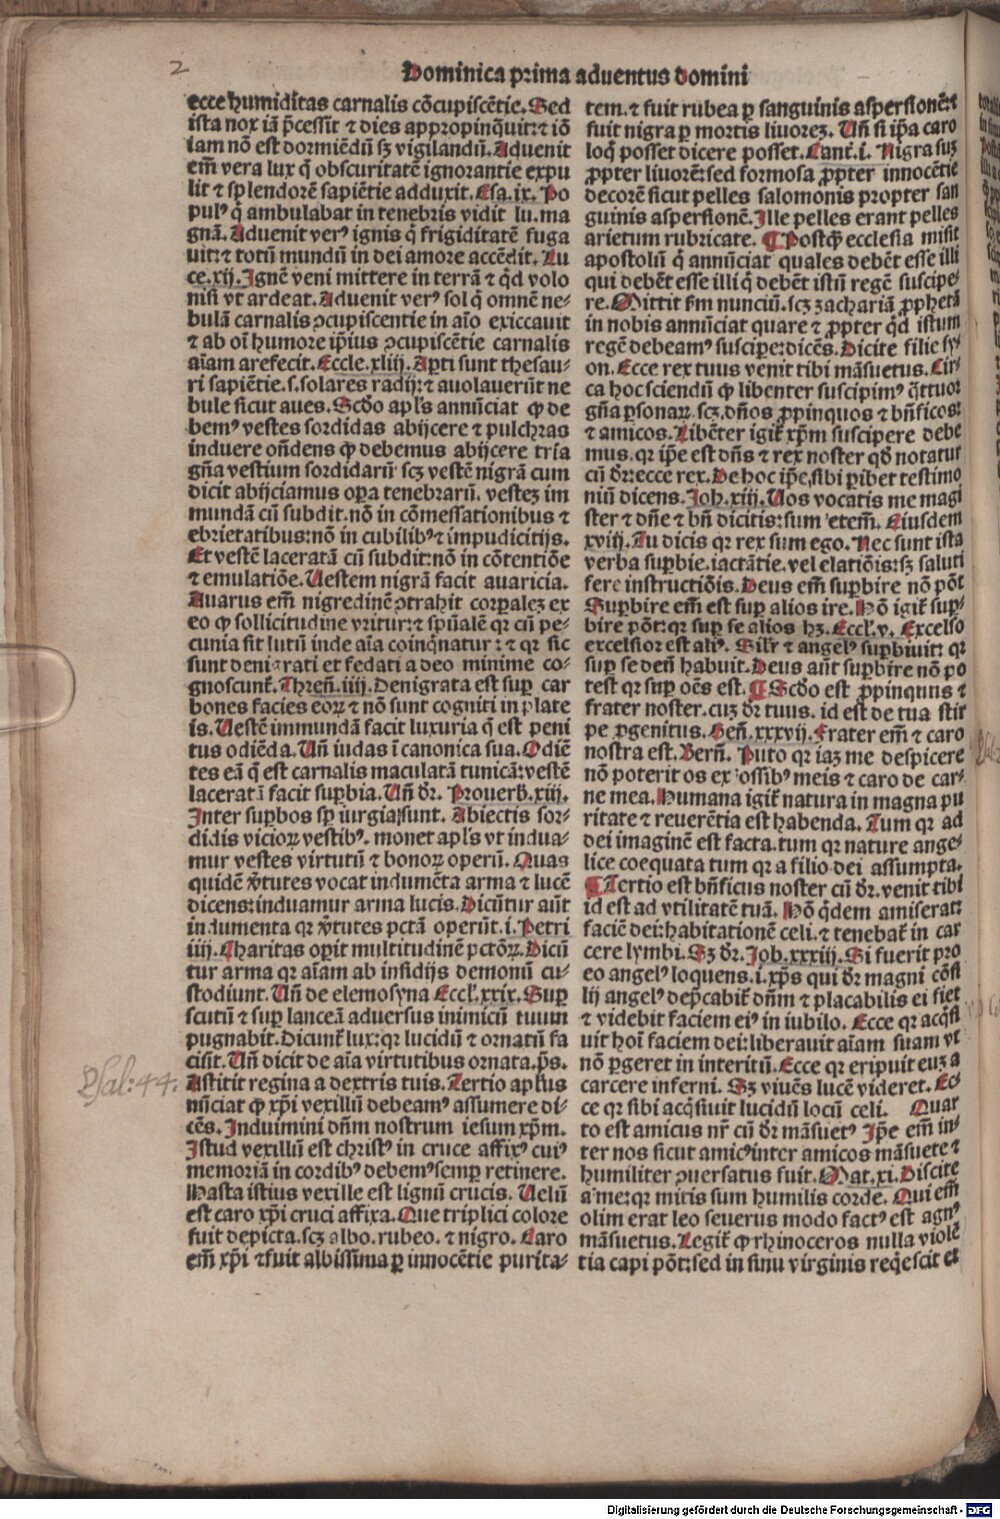 2
Dominica prima aduentus domini
ecce humiditas carnalis cōcupiscētie. Sed
ista nox iā p̄cessit ⁊ dies appropinq̄uit:⁊ iō
iam nō est dormiēdū sꝫ vigilandū. Aduenit
em̄ vera lux q̄ obscuritatē ignorantie expu
lit ⁊ splendorē sapiētie adduxit. Esa. ix. Po
pulꝰ q̄ ambulabat in tenebris vidit lu. ma
gnā. Aduenit verꝰ ignis q̄ frigiditatē fuga
uit:⁊ totū mundū in dei amore accēdit. Lu
ce. xij. Ignē veni mittere in terrā ⁊ q̄d volo
nisi vt ardeat. Aduenit verꝰ sol q̄ omnē ne⸗
bulā carnalis ꝯcupiscentie in aīo exiccauit
⁊ ab oī humore ip̄ius ꝯcupiscētie carnalis
aīam arefecit. Eccle. xliij. Apti sunt thesau⸗
ri sapiētie. s. solares radij:⁊ auolauerūt ne
bule sicut aues. Scd̄o apl̄s annūciat ꝙ de
bemꝰ vestes sordidas abijcere ⁊ pulchras
induere on̄dens ꝙ debemus abijcere tria
gn̄a vestium sordidarū scꝫ vestē nigrā cum
dicit abijciamus oꝑa tenebrarū. vesteꝫ im
mundā cū subdit. nō in cōmessationibus ⁊
ebrietatibus: nō in cubilibꝰ ⁊ impudicitijs.
Et vestē laceratā cū subdit: nō in cōtentiōe
⁊ emulatiōe. Uestem nigrā facit auaricia.
Auarus em̄ nigredinē ꝯtrahit corpaleꝫ ex
eo ꝙ sollicitudine vritur:⁊ spūalē qꝛ cū pe⸗
cunia sit lutū inde aīa coinq̄natur:⁊ qꝛ sic
sunt denigrati et fedati adeo minime co⸗
gnoscunt̄. Thren̄. iiij. Denigrata est suꝑ car
bones facies eoꝝ ⁊ nō sunt cogniti in plate
is. Uestē immundā facit luxuria q̄ est peni
tus odiēda. Un̄ iudas ī canonica sua. Odiē
tes eā q̄ est carnalis maculatā tunicā: vestē
laceratā facit suꝑbia. Un̄ dr̄. Prouerb̄. xiij.
Inter suꝑbos sp̄ iurgia sunt. Abiectis sor⸗
didis vicioꝝ vestibꝰ. monet apl̄s vt indua⸗
mur vestes virtutū ⁊ bonoꝝ operū. Quas
quidē v̄tutes vocat indumēta arma ⁊ lucē
dicens: induamur arma lucis. Dicūtur aūt
indumenta qꝛ v̄tutes pctā operūt. i. Petri
iiij. Charitas oꝑit multitudinē pctōꝝ. Dicū
tur arma qꝛ aīam ab insidijs demonū cu⸗
stodiunt. Un̄ de elemosyna Eccl̄. xxix. Suꝑ
scutū ⁊ suꝑ lanceā aduersus inimicū tuum
pugnabit. Dicunt̄ lux: qꝛ lucidū ⁊ ornatū fa
cisit. Un̄ dicit de aīa virtutibus ornata. p̄s.
Psal: 44.
Astitit regina a dextris tuis. Tertio aplūs
nūciat ꝙ xp̄i vexillū debeamꝰ assumere di⸗
cēs. Induimini dn̄m nostrum iesum xp̄m.
Istud vexillū est christꝰ in cruce affixꝰ cuiꝰ
memoriā in cordibꝰ debemꝰ semꝑ retinere.
Hasta istius vexille est lignū crucis. Uelū
est caro xp̄i cruci affixa. Que triplici colore
fuit depicta. scꝫ albo. rubeo. ⁊ nigro. Caro
em̄ xp̄i ⁊ fuit albissima ꝑ innocētie purita⸗
tem. ⁊ fuit rubea ꝑ sanguinis aspersionē:⁊
fuit nigra ꝑ mortis liuoreꝫ. Un̄ si ip̄a caro
loq̄ posset dicere posset. Cant̄. i. Nigra suꝫ
ꝓpter liuorē: sed formosa ꝓpter innocētie
decorē sicut pelles salomonis propter san
guinis aspersionē. Ille pelles erant pelles
arietum rubricate. ¶ Postq̄ ecclesia misit
apostolū q̄ annūciat quales debēt esse illi
qui debēt esse illi q̄ debēt istū regē suscipe⸗
re. Mittit sm̄ nunciū. scꝫ zachariā ꝓphetā
in nobis annūciat quare ⁊ ꝓpter q̄d istum
regē debeamꝰ suscipe: dicēs. Dicite filie sy⸗
on. Ecce rex tuus venit tibi māsuetus. Cir⸗
ca hoc sciendū ꝙ libenter suscipimꝰ q̄ttuor
gn̄a ꝑsonaꝝ. scꝫ. dn̄os ꝓpinquos ⁊ bn̄ficos:
⁊ amicos. Libēter igit̄ xp̄m suscipere debe
mus. qꝛ ip̄e est dn̄s ⁊ rex noster qd̄ notatur
cū dr̄: ecce rex. De hoc ip̄e sibi ꝑibet testimo
niū dicens. Joh. xiij. Uos vocatis me magi
ster ⁊ dn̄e ⁊ bn̄ dicitis: sum etem̄. Eiusdem
xviij. Tu dicis qꝛ rex sum ego. Nec sunt ista
verba suꝑbie. iactātie. vel elatiōis: sꝫ saluti
fere instructiōis. Deus em̄ suꝑbire nō pōt
Suꝑbire em̄ est suꝑ alios ire. Hō igit̄ suꝑ⸗
bire pōt: qꝛ suꝑ se alios hꝫ. Eccl̄. v. Excelso
excelsior est aliꝰ. Silr̄ ⁊ angelꝰ suꝑbiuit: qꝛ
suꝑ se deū habuit. Deus aūt suꝑbire nō po
test qꝛ suꝑ oēs est. ¶ Scd̄o est ꝓpinquus ⁊
frater noster. cuꝫ dr̄ tuus. id est de tua stir
pe ꝓgenitus. Gen̄. xxxvij. Frater em̄ ⁊ caro
nostra est. Bern̄. Puto qꝛ iaꝫ me despicere
nō poterit os ex ossibꝰ meis ⁊ caro de car⸗
ne mea. Humana igit̄ natura in magna pu
ritate ⁊ reuerētia est habenda. Tum qꝛ ad
dei imaginē est facta. tum qꝛ nature ange⸗
lice coequata tum qꝛ a filio dei assumpta.
¶ Tertio est bn̄ficus noster cū dr̄. venit tibi
id est ad vtilitatē tuā. Hō q̄dem amiserat:
faciē dei: habitationē celi. ⁊ tenebat̄ in car
cere lymbi. Sꝫ dr̄. Job. xxxiij. Si fuerit pro
eo angelꝰ loquens. i. xp̄s qui dr̄ magni cōsi
lij angelꝰ dep̄cabit̄ dn̄m ⁊ placabilis ei fiet
⁊ videbit faciem eiꝰ in iubilo. Ecce qꝛ acq̄si
uit hoī faciem dei: liberauit aīam suam vt
nō ꝑgeret in interitū. Ecce qꝛ eripuit euꝫ a
carcere inferni. Sꝫ viuēs lucē videret. Ec⸗
ce qꝛ sibi acq̄siuit lucidū locū celi. Quar
to est amicus nr̄ cū dr̄ māsuetꝰ Ip̄e em̄ in⸗
ter nos sicut amicꝰ inter amicos māsuete ⁊
humiliter ꝯuersatus fuit. Mat. xi. Discite
a me: qꝛ mitis sum humilis corde. Qui em̄
olim erat leo seuerus modo factꝰ est agnꝰ
māsuetus. Legit̄ ꝙ rhinoceros nulla violē
tia capi pōt: sed in sinu virginis req̄escit et
Digitalisierung gefördert durch die Deutsche Forschungsgemeinschaft - DFG